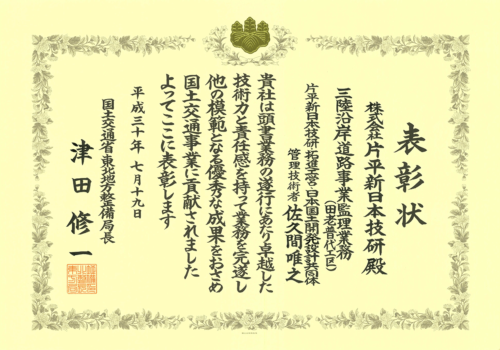 表彰状
株式会社片平新日本技研殿
三陸沿岸道路事業監理業務
(田老普代工区)
片平新日本技研・拓進立営・日本国土開発設計共同体
管理技術者 佐久間唯之
貴社は頭書業務の遂行にあたり卓越した
技術力と責任感を持って業務を完遂し
他の模範となる優秀な成果をおさめ
国土交通事業に貢献されました
よってここに表彰します
平成三十年 七月十九日
国土交通省東北地方整備局長
津田修一